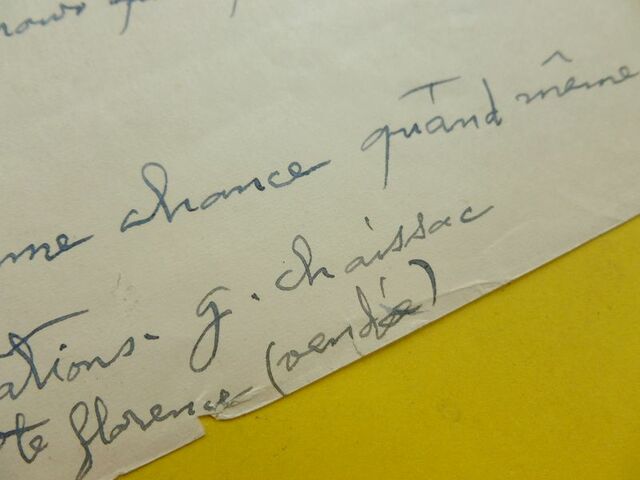 chance quand même
ations. g. chaissac
te florence (vendée)